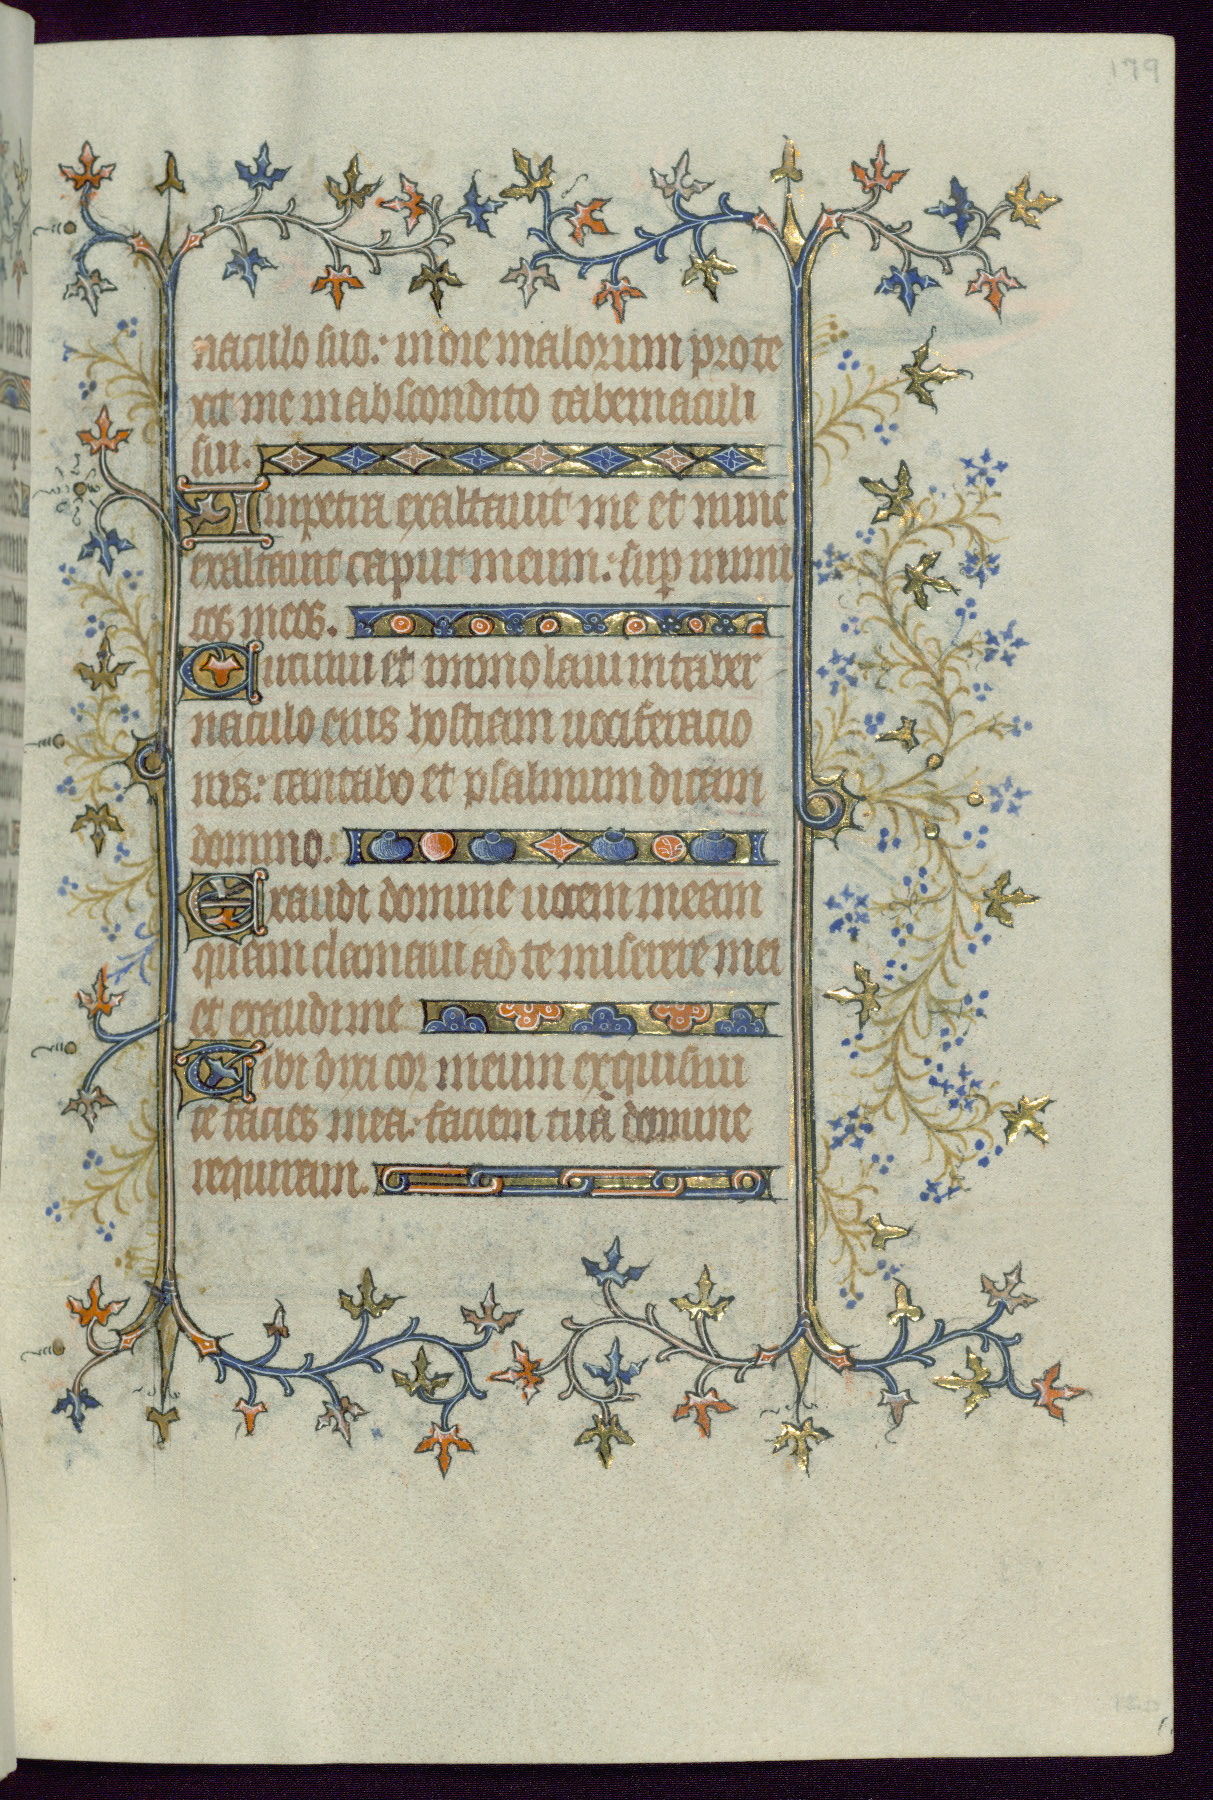 179
naculo suo: in die malorum prote
xit me in abscondito tabernaculi
sui.
In petra exaltauit me et nunc
exaltauit caput meum: sup inimi
cos meos.
Circuiui et immolaui in taber
naculo eius hostiam uociferacio
nis: cantabo et psalmum dicam
domino.
Exaudi domine uocem meam
quam clamaui ad te miserere mei
et exaudi me
Tibi dixi cor meum exquisiuit
te facies mea: faciem tuā domine
requiram.